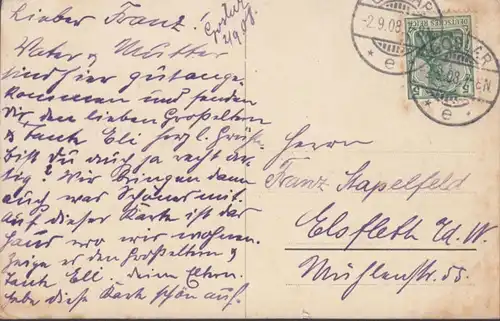 Lieber Franz!
Goslar
2/9 08.
Vater & Mutter
sind hier gut ange-
kommen und senden
Dir den lieben Großeltern
& Tante Eli herzl. Grüße.
Bist Du auch ja recht ar-
tig? Wir bringen dann
auch was Schönes mit.
Auf dieser Karte ist das
Haus wo wir wohnen.
Zeige es den Großeltern &
Tante Elli. Deine Eltern.
hebe diese Karte schön auf.
-2.9.08.
* e *
DEUTSCHES REICH
5 5
Herrn
Franz Stapelfeld
Elsfleth i/d. W.
Mühlenstr.